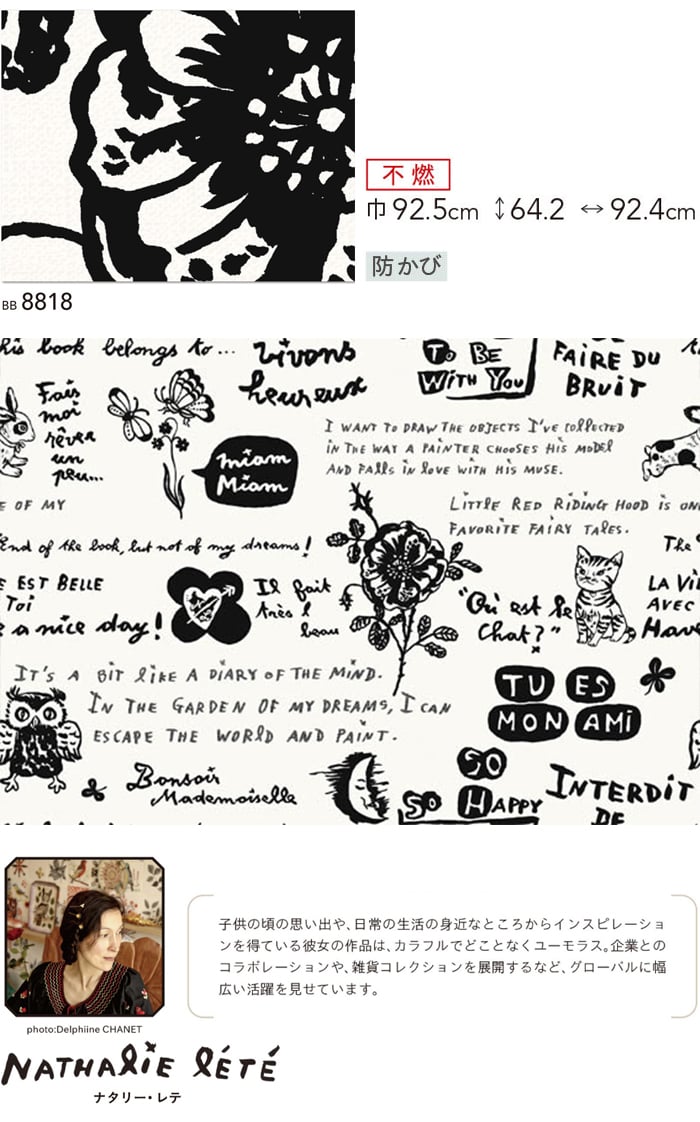 不燃
巾92.5cm ↕64.2 ↔92.4cm
防かび
BB 8818
his book belongs to...
vivons
heureux
To BE
WiTH You
FAiRE DU
BRUiT
Fais
moi
rêver
un
peu...
miam
Miam
I WANT To DRAW THE OBJECTS I'VE COllECTED
iN THE WAY A PAiNTER CHOOSES HiS MODEl
AND FAlls iN lOVE WiTH HiS MUSE.
E OF MY
LiTTlE RED RiDiNG HOOD iS ON
FAVORiTE FAiRY TAlES.
End of the book, but not of my dreams!
The
E EST BEllE
Toi
e a nice day!
Il fait
très
beau
"Où est le
Chat?"
LA Vi
AVEC
Have
IT'S A BiT liKE A DiARY OF THE MiND.
IN THE GARDEN OF MY DREAMS, I CAN
ESCAPE THE WORlD AND PAiNT.
TU ES
MON AMi
Bonsoir
Mademoiselle
SO
SO HAPPY
INTERDiT
DE
子供の頃の思い出や、日常の生活の身近なところからインスピレーショ
ンを得ている彼女の作品は、カラフルでどことなくユーモラス。企業との
コラボレーションや、雑貨コレクションを展開するなど、グローバルに幅
広い活躍を見せています。
photo:Delphiine CHANET
NATHAliE léTÉ
ナタリー・レテ